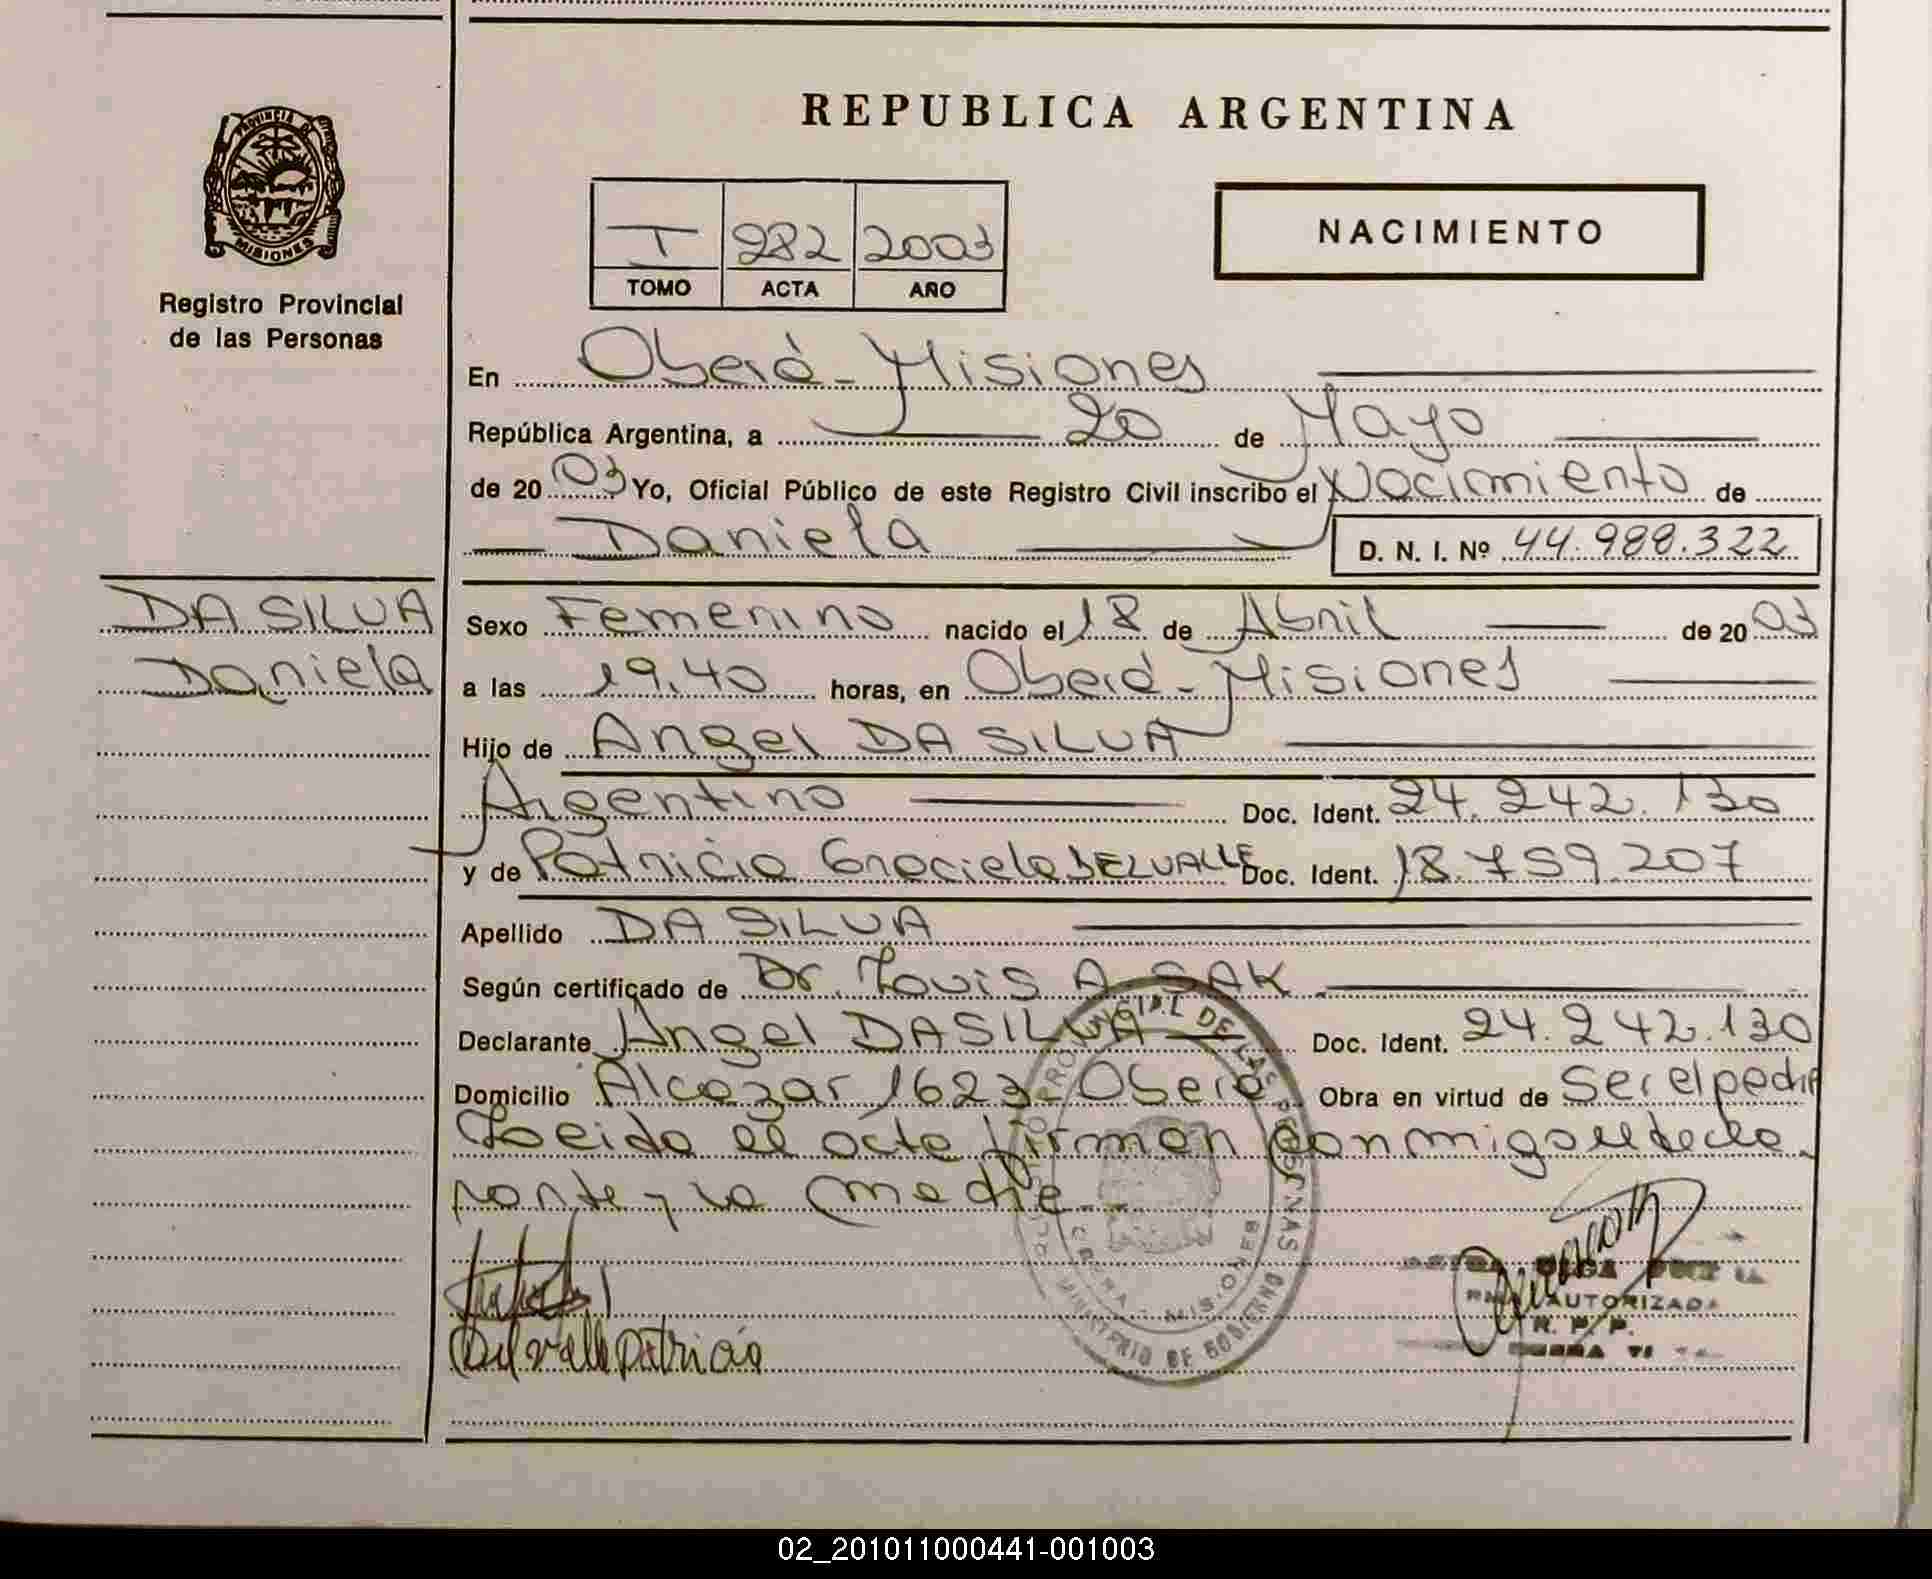 REPUBLICA ARGENTINA
PROVINCIA DE
MISIONES
Registro Provincial
de las Personas
I 282 2003
TOMO ACTA AÑO
NACIMIENTO
En Oberá - Misiones
República Argentina, a 20 de Mayo
de 20 03 Yo, Oficial Público de este Registro Civil inscribo el Nacimiento de
Daniela D. N. I. Nº 44.988.322
DA SILVA
Daniela
Sexo Femenino nacido el 18 de Abril de 20 03
a las 19,40 horas, en Oberá - Misiones
Hijo de Angel DA SILVA
Argentino Doc. Ident. 24.242.130
y de Patricia Graciela DELVALLE Doc. Ident. 18.759.207
Apellido DA SILVA
Según certificado de Dr. Louis A. SAK
Declarante Angel DA SILVA Doc. Ident. 24.242.130
Domicilio Alcazar 1623 - Oberá Obra en virtud de Ser el padre
Leida el acta firman conmigo el decla
rante y la madre.-
PROVINCIAL DE LAS PERSONAS
MISIONES
MINISTERIO DE GOBIERNO
Delvalle Patricia
OLGA
AUTORIZADA
R. P. P.
02_201011000441-001003